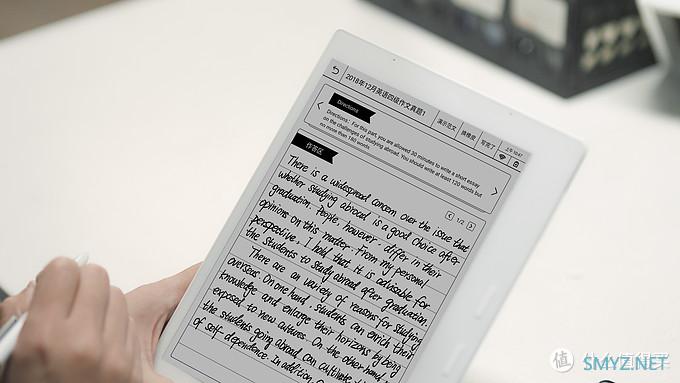 2018年12月英语四级作文真题1
演示范文
换橡皮
写完了
上午 10:47
Directions
Directions: For this part, you are allowed 30 minutes to write a short essay
on the challenges of studying abroad. You should write at least 120 words but
no more than 180 words
作答区
1/2
There is a widespread concern over the issue that
whether studying abroad is a good choice after
graduation. People, however, differ in their
opinions on this matter. From my personal
perspective, I hold that it is advisable for
the students to study abroad after graduation.
There are an variety of reasons for studying
overseas. On one hand, students can enrich their
knowledge and enlarge their horizons by being
exposed to new cultures. On the other hand,
the students going abroad can cultivate
of self-dependence. In addition,
值
SMYZ.NET